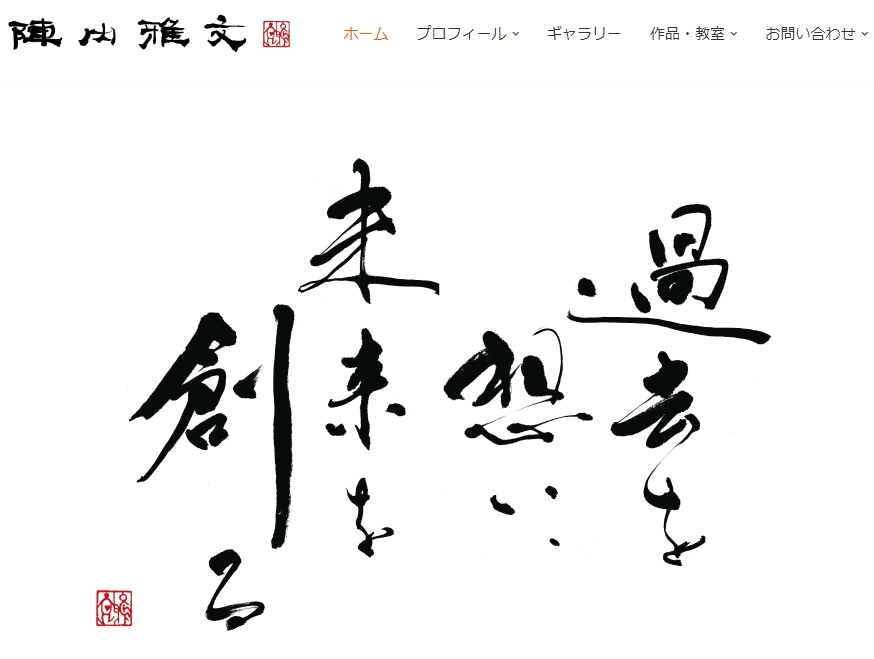 陣内雅文
ホーム プロフィール ギャラリー 作品・教室 お問い合わせ
過去を
想い
未来を
創る